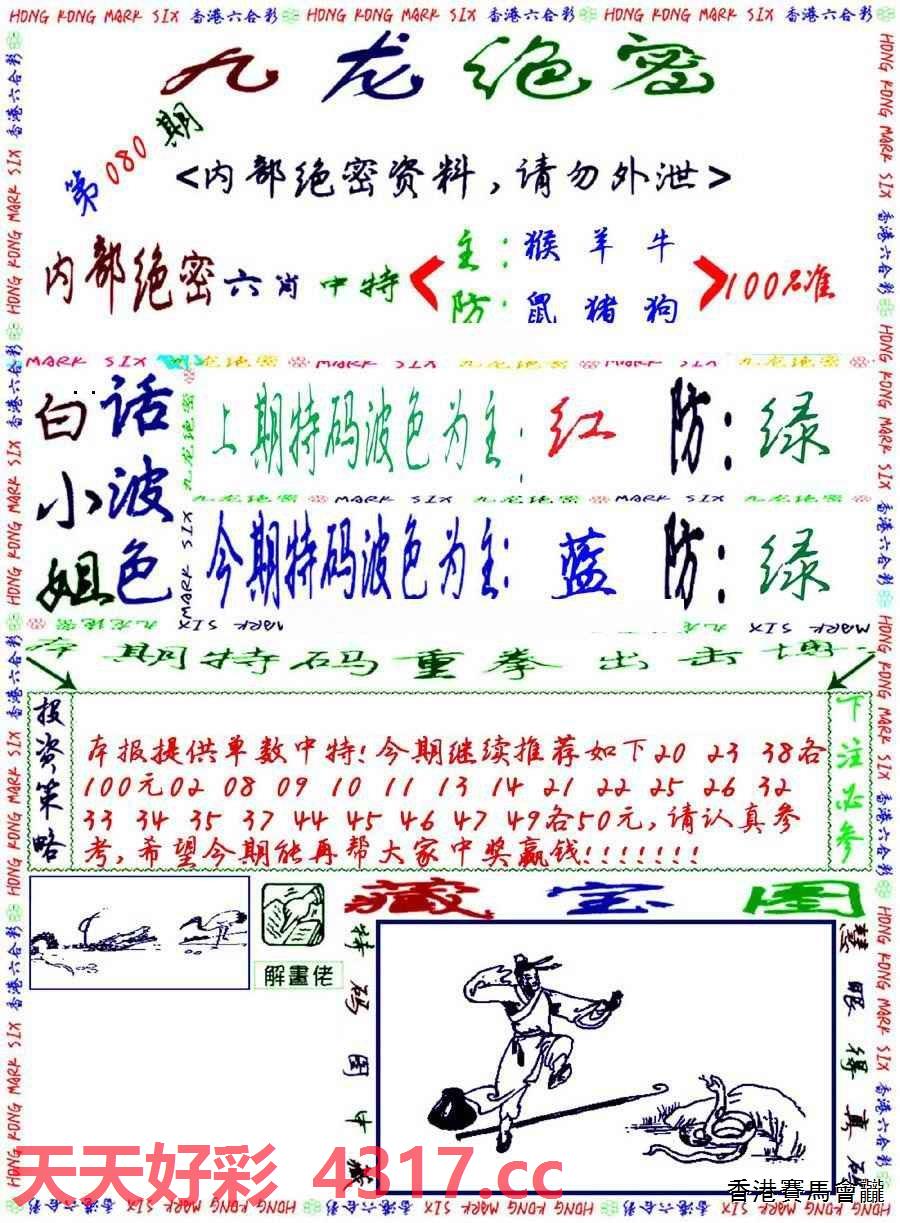 HONG KONG MARK SIX 香港六合彩 HONG KONG MARK SIX 香港六合彩 HONG KONG MARK SIX 香港六合彩
九龙绝密
第080期
<内部绝密资料,请勿外泄>
内部绝密六肖中特
主:猴羊牛
防:鼠猪狗
100%准
白话小波姐色
上期特码波色为主:红 防:绿
九龙绝密 MARK SIX 九龙绝密 MARK SIX 九龙绝密
今期特码波色为主:蓝 防:绿
本期特码重拳出击博
投资策略
本报提供单数中特!今期继续推荐如下20 23 38各
100元02 08 09 10 11 13 14 21 22 25 26 32
33 34 35 37 44 45 46 47 49各50元,请认真参
考,希望今期能再帮大家中奖赢钱!!!!!!!
下注必参
解畫佬
藏宝图
特码图中藏
慧眼得真码
天天好彩 4317.cc
香港賽馬會